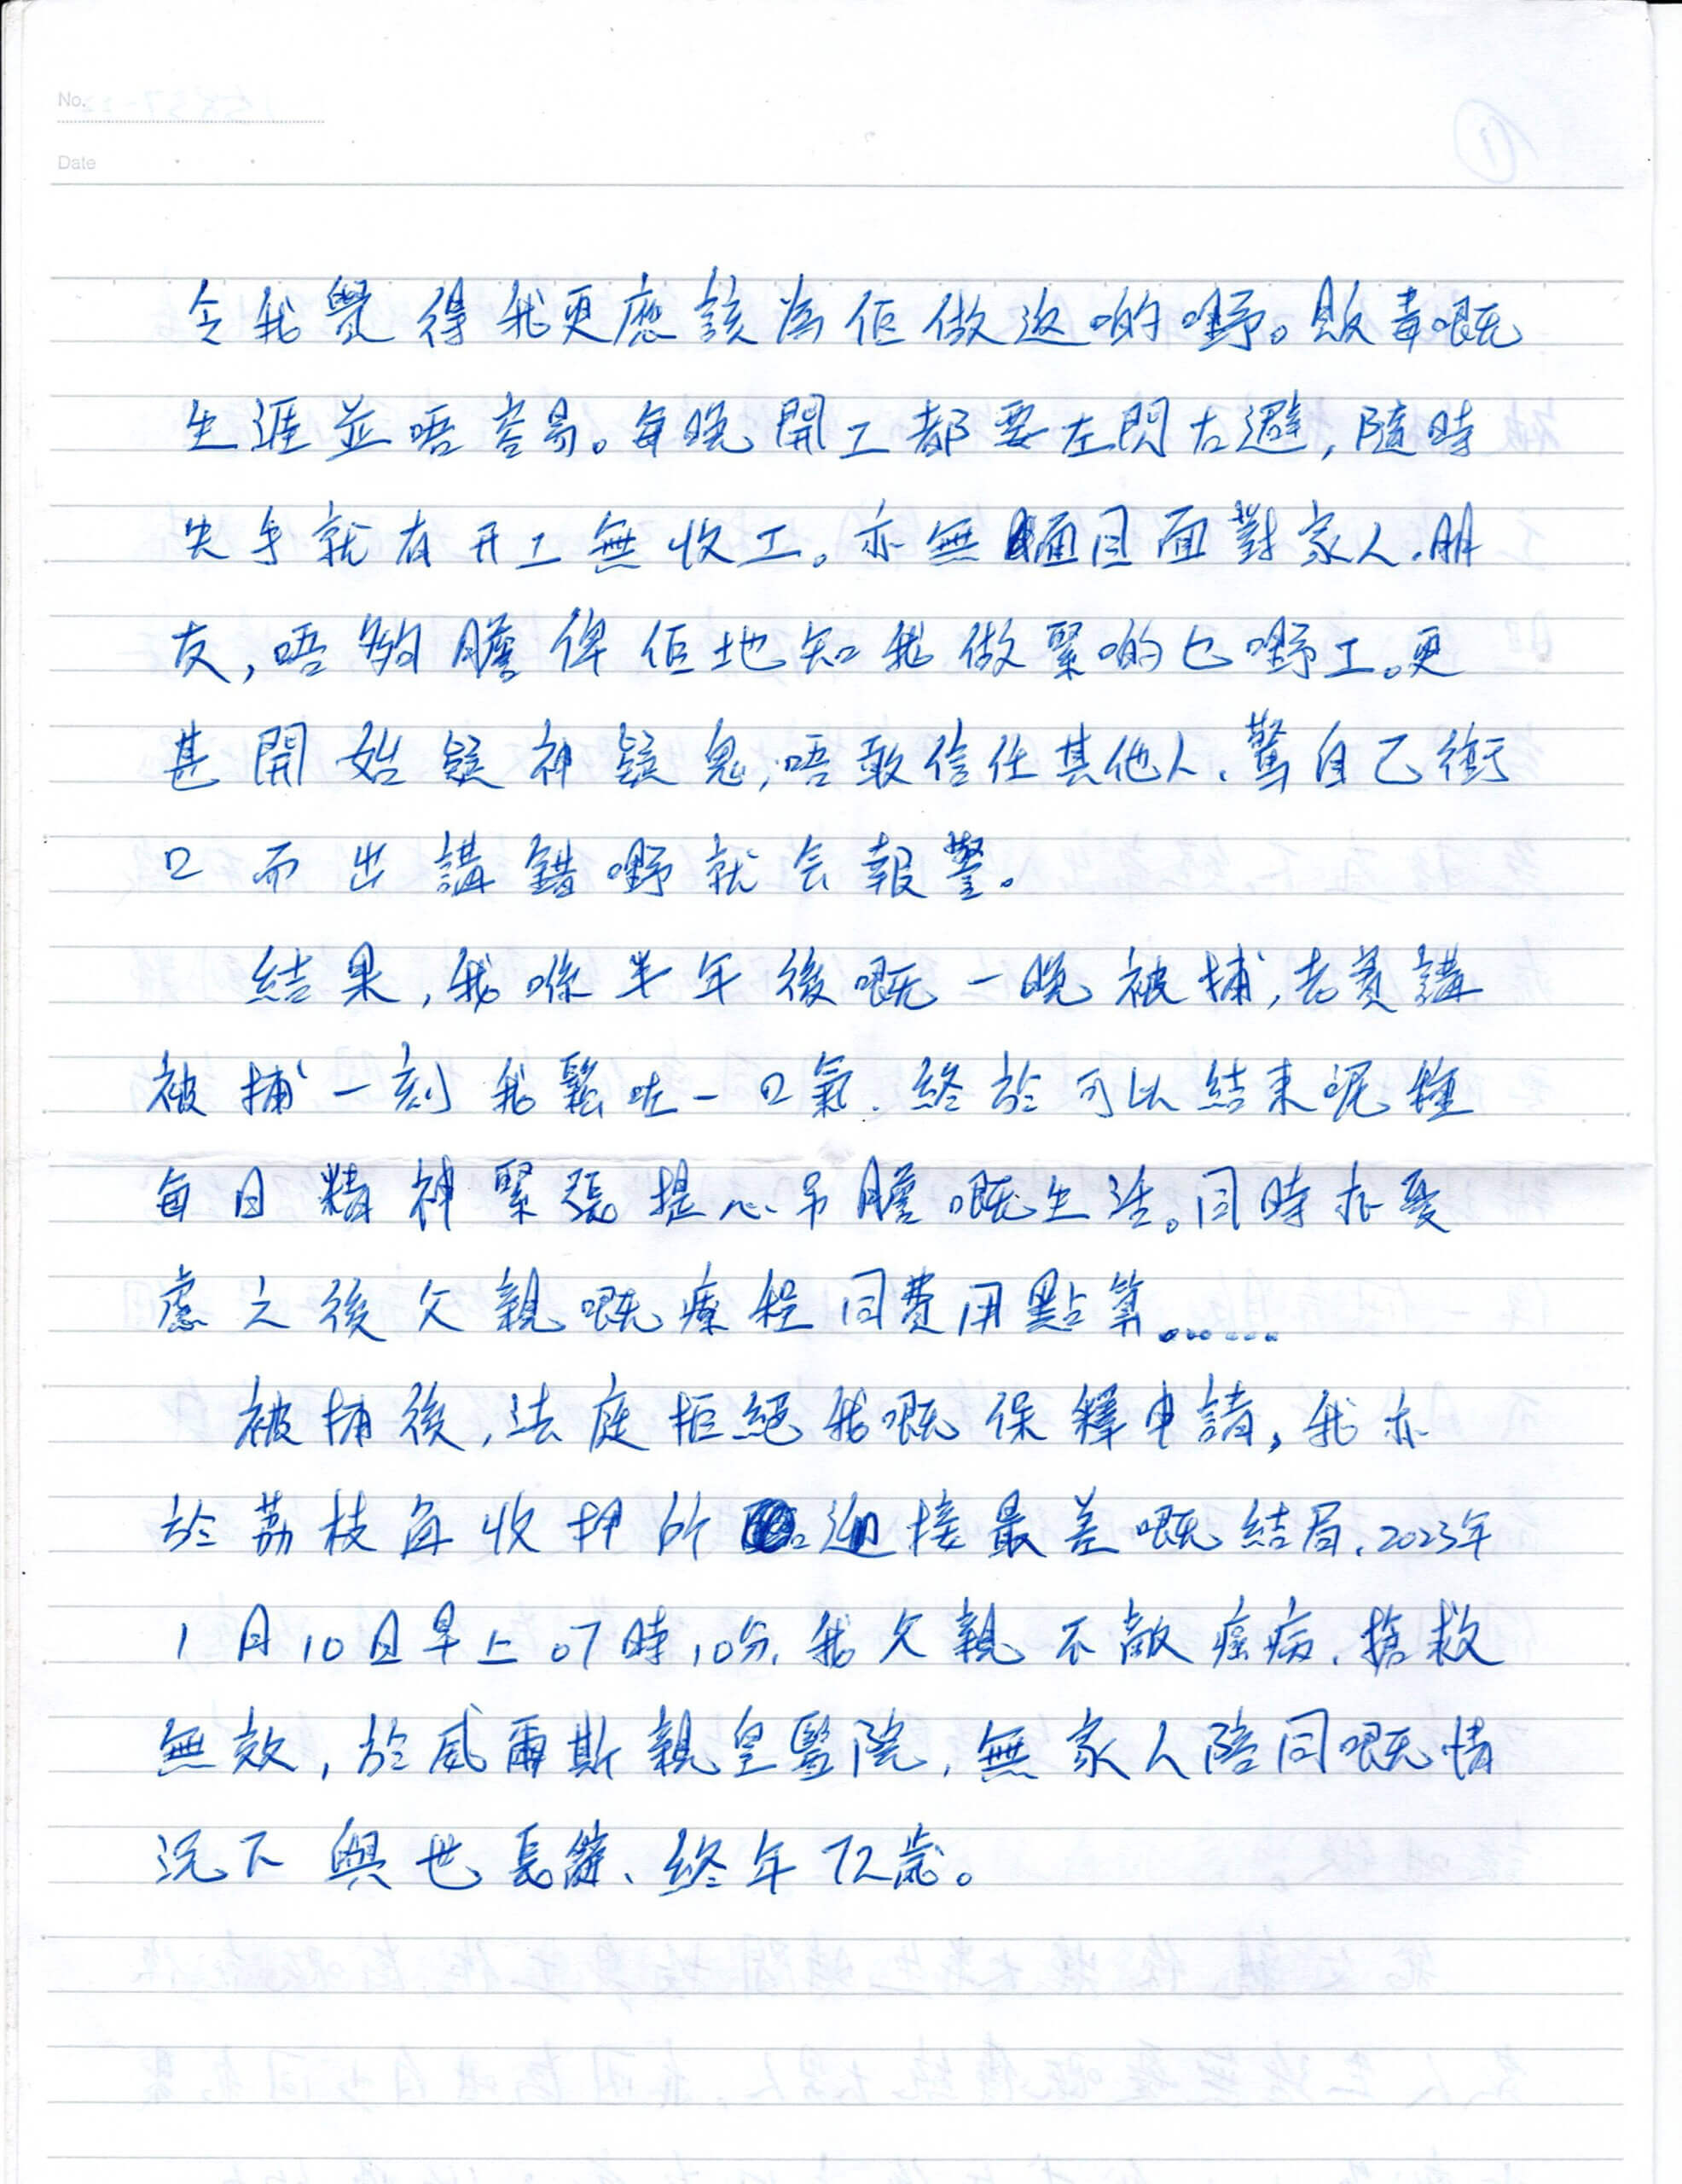 No.
Date
令我覺得我更應該為佢做返啲嘢。販毒嘅
生涯並唔容易。每晚開工都要左閃右避,隨時
失手就有开工無收工。亦無面目面對家人.朋
友,唔夠膽俾佢地知我做緊啲乜嘢工。更
甚開始疑神疑鬼,唔敢信任其他人.驚自己衝
口而出講錯嘢就会報警。
結果,我喺半年後嘅一晚被捕,老實講
被捕一刻我鬆咗一口氣.終於可以結束呢種
每日精神緊張提心吊膽嘅生活。同時亦憂
慮之後父親嘅療程同費用點算。.....
被捕後,法庭拒絕我嘅保釋申請,我亦
於荔枝角收押所迎接最差嘅結局.2023年
1月10日早上07時10分.我父親不敵癌病.搶救
無效,於威爾斯親皇醫院,無家人陪同嘅情
況下與世長辭、終年72歲。